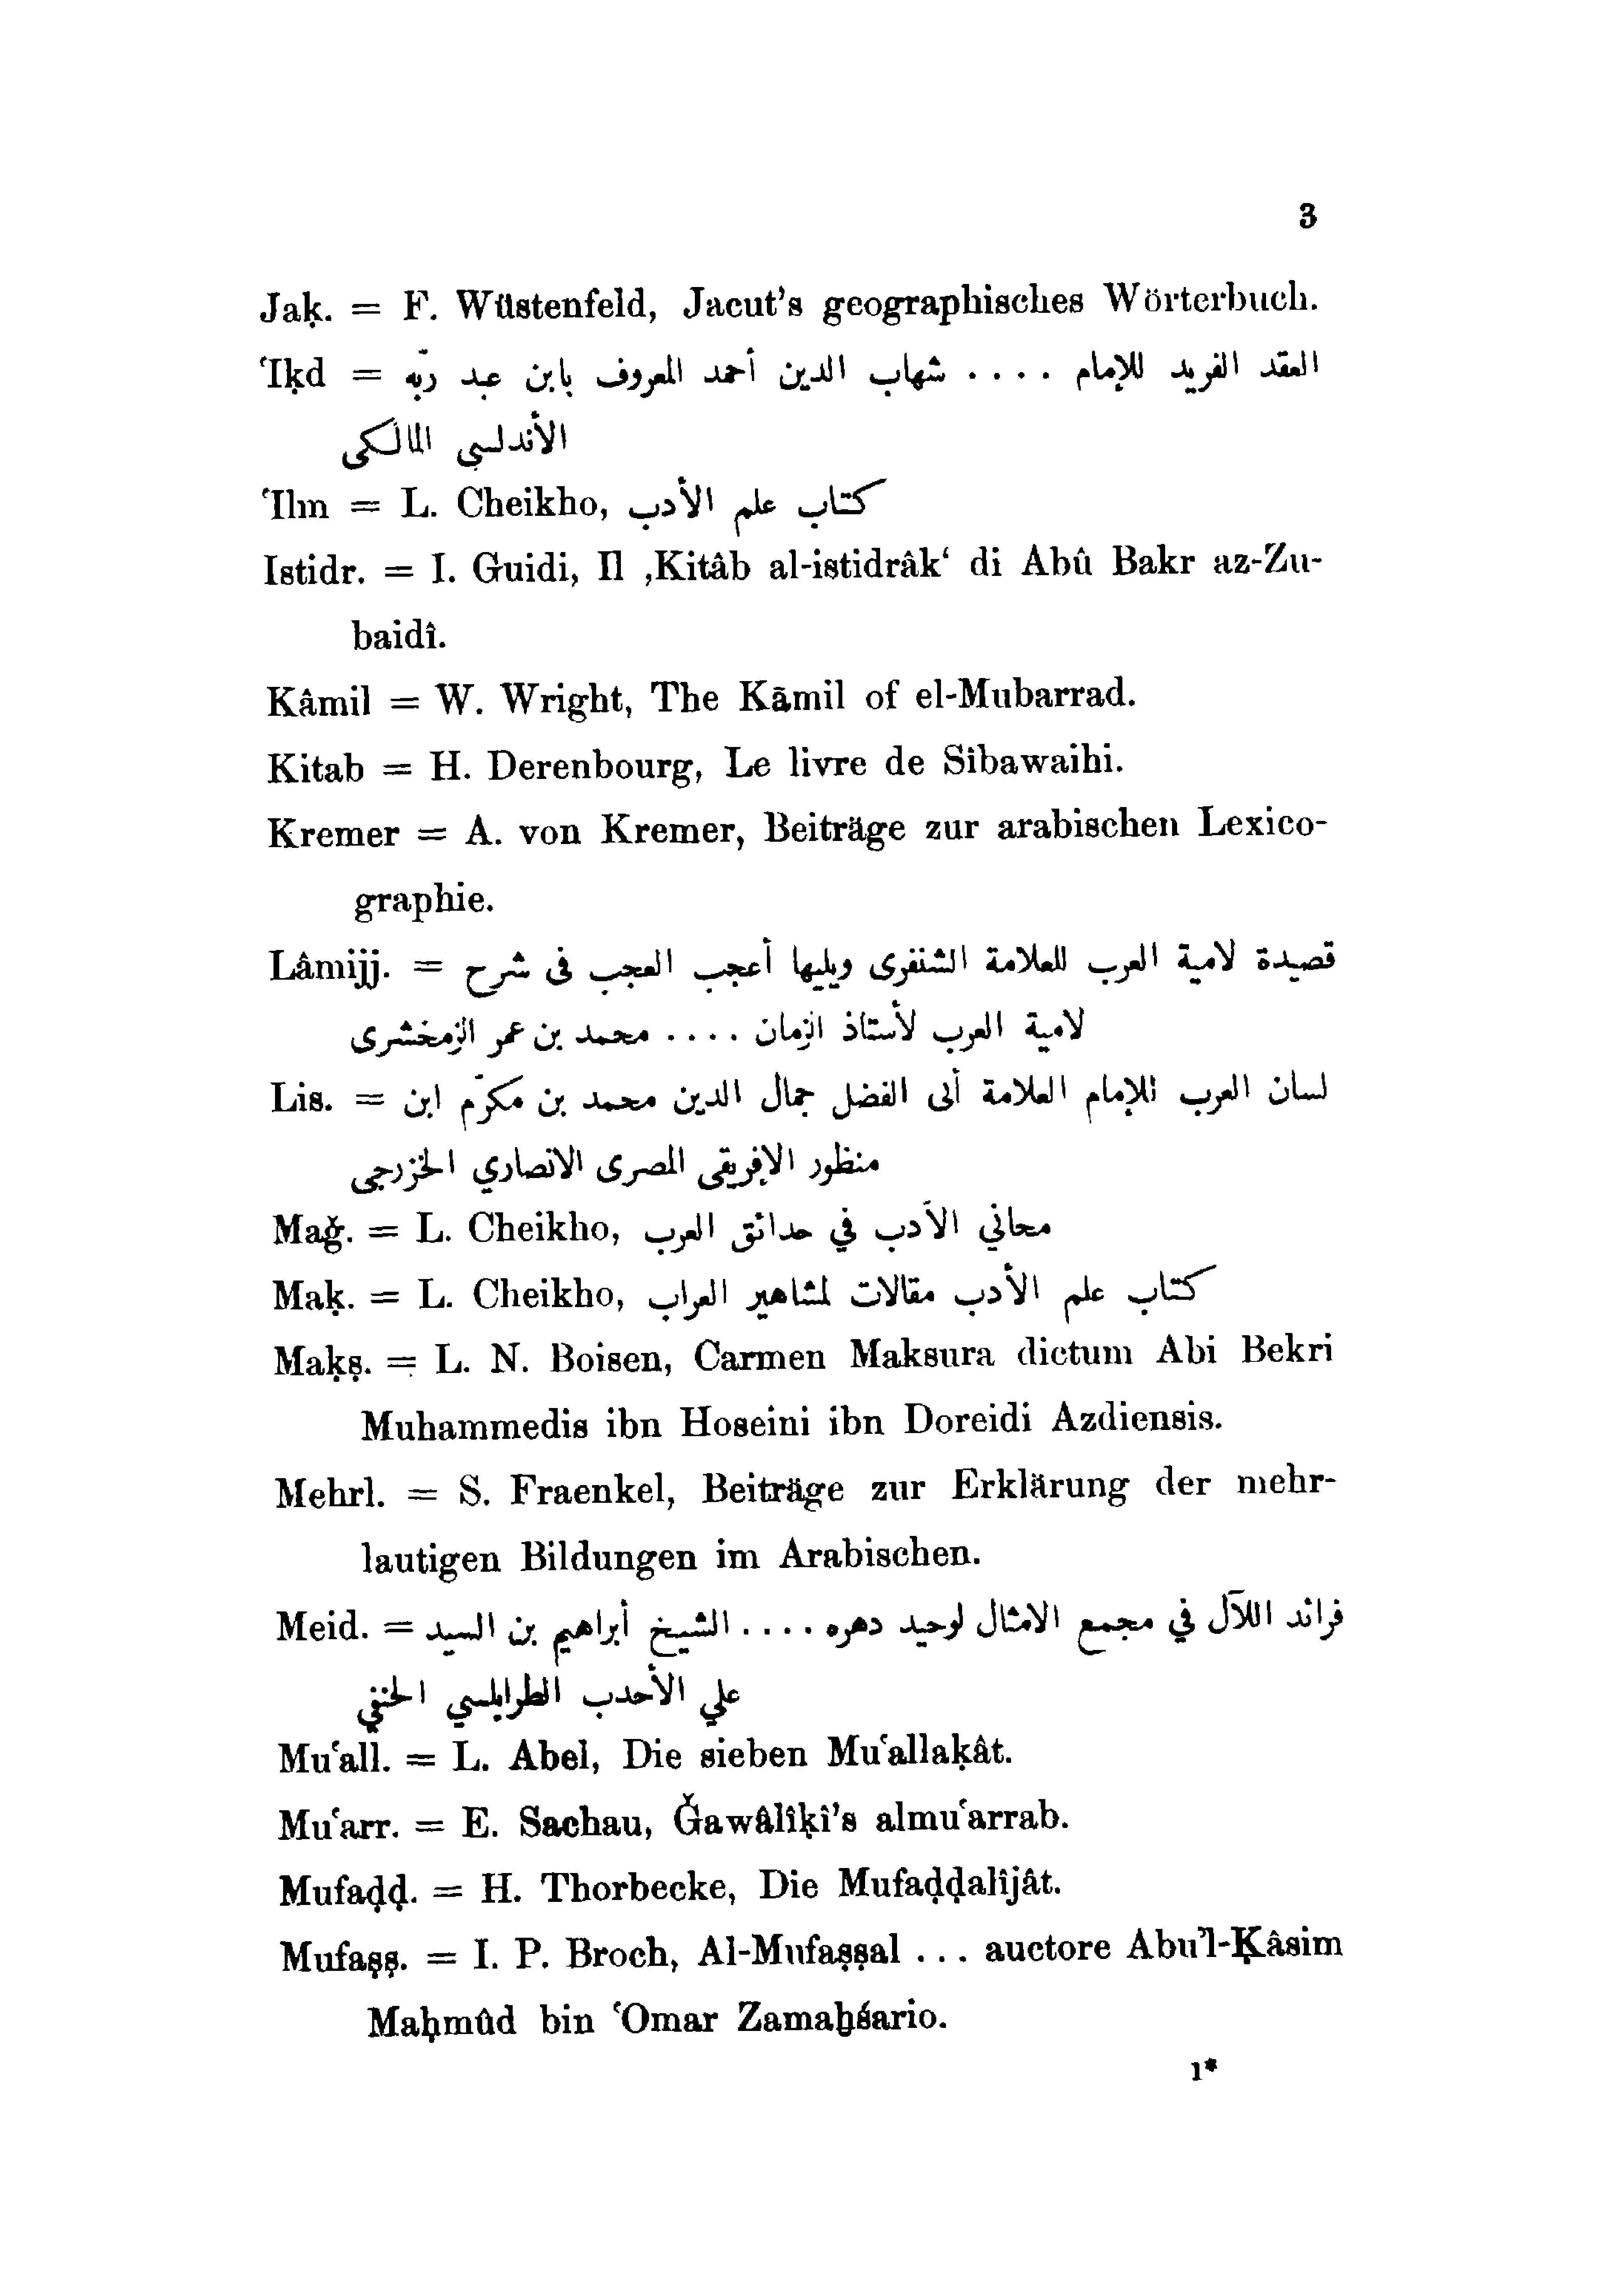 3
Jaḳ. = F. Wüstenfeld, Jacut's geographisches Wörterbuch.
ʿIḳd = العقد الفريد للإمام .... شهاب الدين أحمد المعروف بابن عبد ربّه
الأندلسى المالكى
ʿIlm = L. Cheikho, كتاب علم الأدب
Istidr. = I. Guidi, Il ‚Kitâb al-istidrâk‘ di Abû Bakr az-Zu-
baidî.
Kâmil = W. Wright, The Kāmil of el-Mubarrad.
Kitab = H. Derenbourg, Le livre de Sîbawaihi.
Kremer = A. von Kremer, Beiträge zur arabischen Lexico-
graphie.
Lâmijj. = قصيدة لامية العرب للعلامة الشنفرى ويليها أعجب العجب فى شرح
لامية العرب لأستاذ الزمان .... محمد بن عمر الزمخشرى
Lis. = لسان العرب للإمام العلامة أبى الفضل جمال الدين محمد بن مكرّم ابن
منظور الإفريقى المصرى الانصاري الخزرجى
Maǧ. = L. Cheikho, مجاني الأدب في حدائق العرب
Maḳ. = L. Cheikho, كتاب علم الأدب مقالات لمشاهير العراب
Maḳṣ. = L. N. Boisen, Carmen Maksura dictum Abi Bekri
Muhammedis ibn Hoseini ibn Doreidi Azdiensis.
Mehrl. = S. Fraenkel, Beiträge zur Erklärung der mehr-
lautigen Bildungen im Arabischen.
Meid. = فرائد اللآل في مجمع الامثال لوحيد دهره .... الشيخ أبراهيم بن السيد
علي الأحدب الطرابلسي الحنفي
Muʿall. = L. Abel, Die sieben Muʿallaḳât.
Muʿarr. = E. Sachau, Ǧawâlîḳi's almuʿarrab.
Mufaḍḍ. = H. Thorbecke, Die Mufaḍḍalîjât.
Mufaṣṣ. = I. P. Broch, Al-Mufaṣṣal ... auctore Abu'l-Ḳâsim
Maḥmûd bin ʿOmar Zamaḫśario.
1*